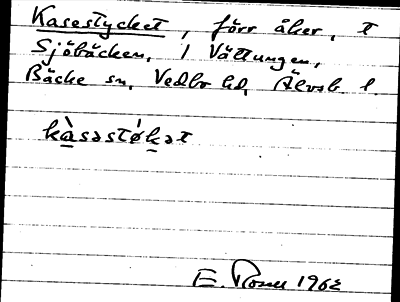 Kasestycket, förr åker, t
Sjöbäcken, 1 Vättungen,
Bäcke sn, Vedbo hd, Älvsb l.
kàsəstø̍kət
E. Rosell 1962